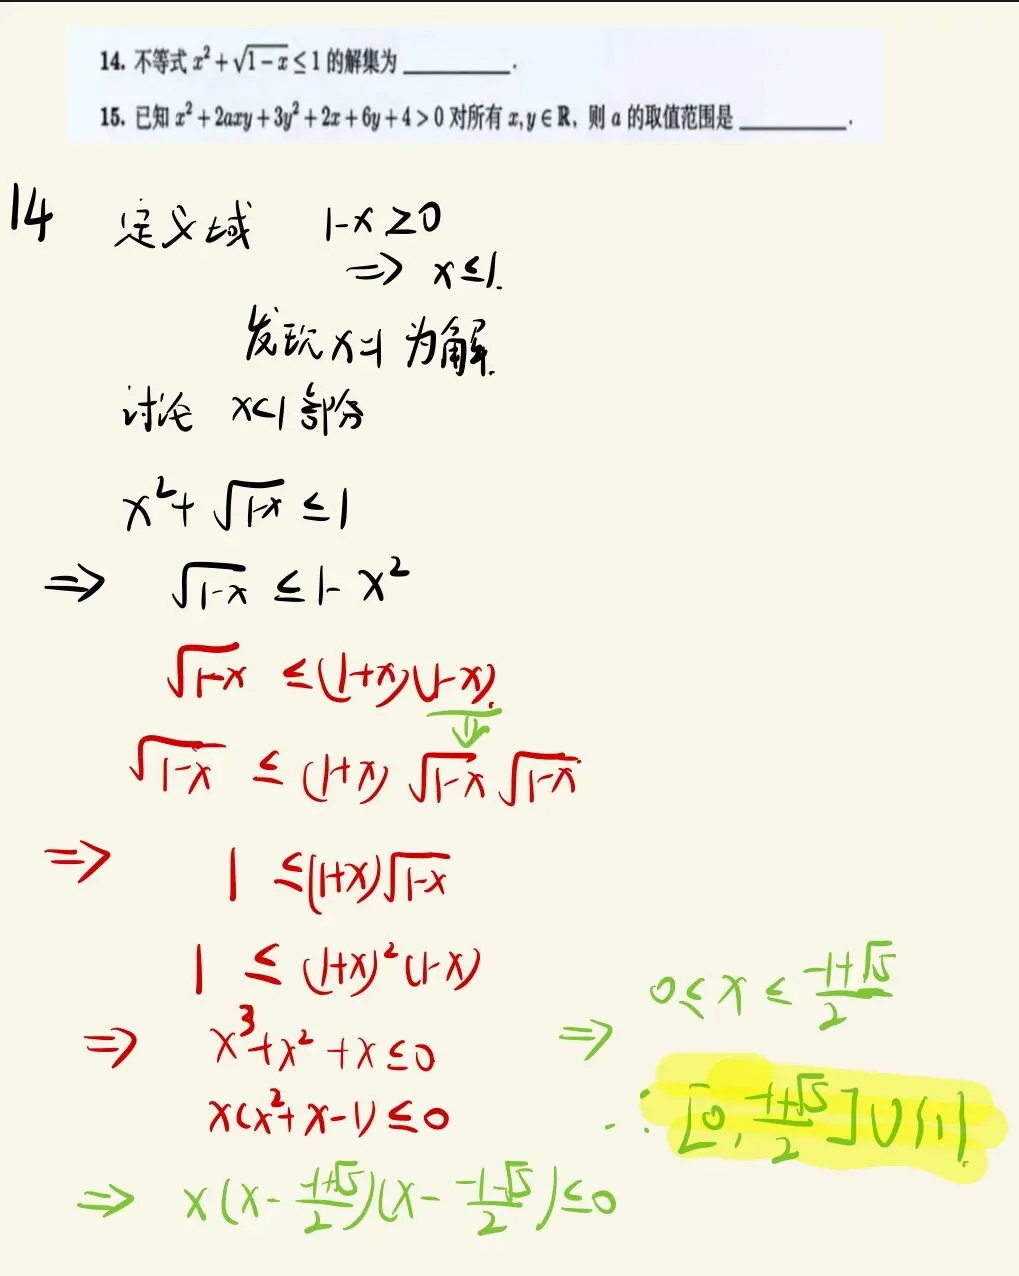 14. 不等式 x² + √(1-x) ≤ 1 的解集为 ________.
15. 已知 x² + 2axy + 3y² + 2x + 6y + 4 > 0 对所有 x, y ∈ R, 则 a 的取值范围是 ________.
14 定义域 1-x ≥ 0
⇒ x ≤ 1.
发现 x=1 为解.
讨论 x<1 部分
x² + √(1-x) ≤ 1
⇒ √(1-x) ≤ 1-x²
√(1-x) ≤ (1+x)(1-x).
⇓
√(1-x) ≤ (1+x) √(1-x) √(1-x)
⇒ 1 ≤ (1+x)√(1-x)
1 ≤ (1+x)²(1-x)
⇒ x³+x²+x ≤ 0
x(x²+x-1) ≤ 0
⇒ x(x - (-1+√5)/2)(x - (-1-√5)/2) ≤ 0
⇒ 0 ≤ x ≤ (-1+√5)/2
∴ [0, (-1+√5)/2] ∪ {1}.